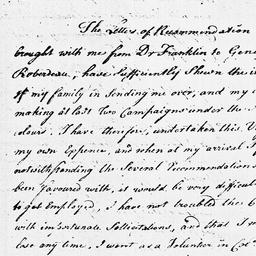 The Letters of Recommendation
brought with me from Dr Franklin to Gene
Roberdeau, have sufficiently Shewn the i
of my family in Sending me over, and my
making it last two Campaigns under the
colours. I have therefore, undertaken this V
my own Expence, and when at my arrival I
notwithstanding the Several Recommendations
been favoured with, it would be very difficult
to get employed, I have not troubled the C
with importunate Sollicitations, and that I m
lose any time, I went as a Volunteer in Col